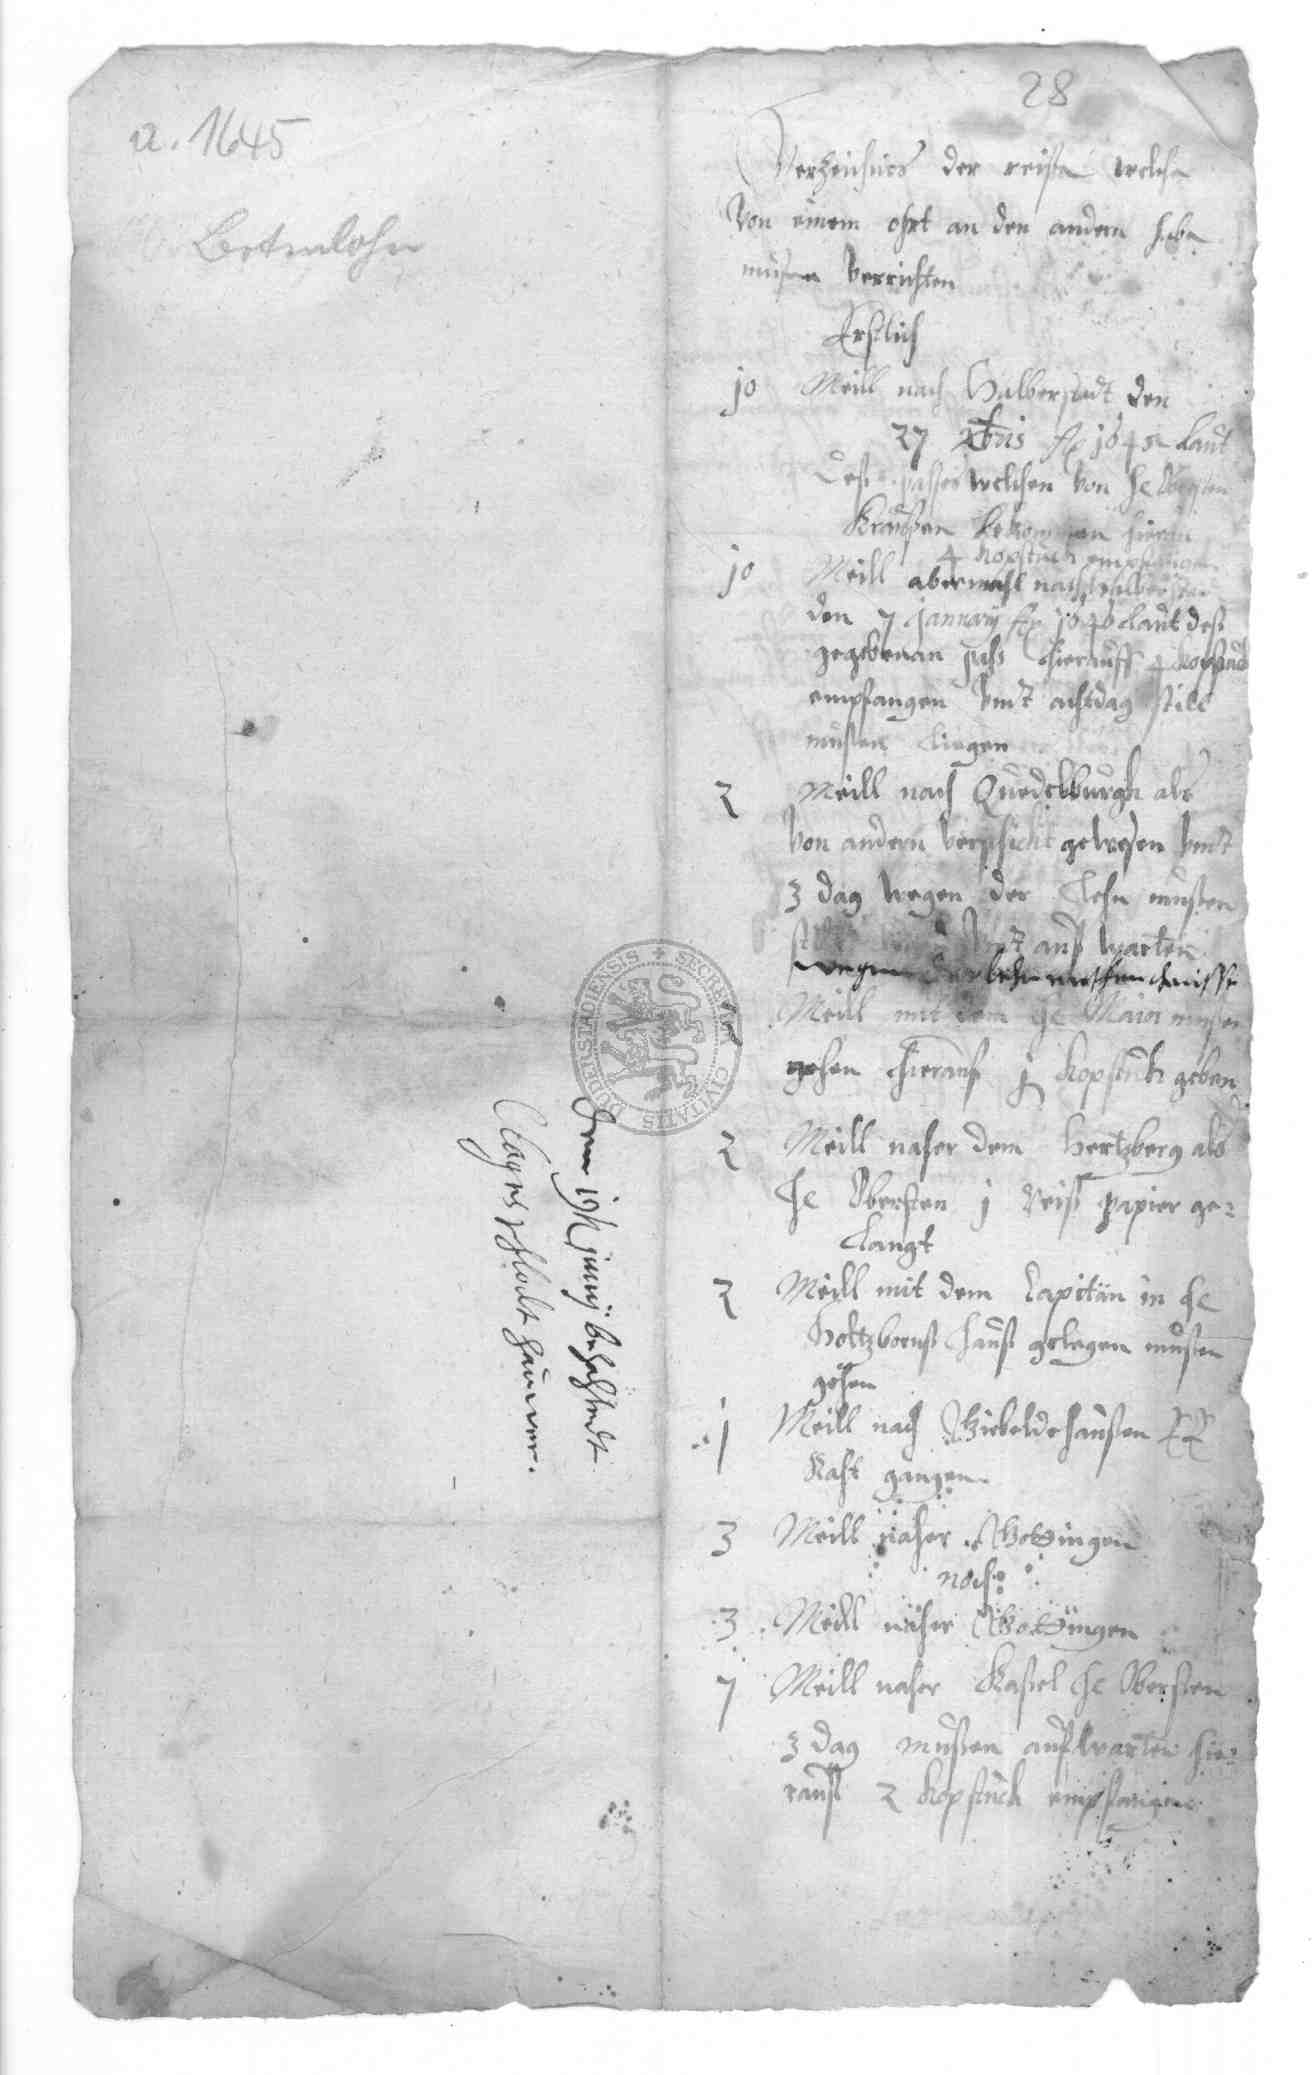 28
a. 1645
Botenlohn
Verzeichnis der reisen welche
von einem ohrt an den andern habe
müsen verrichten
Erstlich
10 Meill nach Halberstadt den
27 Xbris Ao 1645 Laut
des passes welchen von He Obersten
Kraußen bekommen hierin
4 Kopstück empfangen
10 Meill abermahl nach Halberstad
den 7 January Ao 1646 Laut des
gegebenen paß hierauff 4 Kopstück
empfangen undt achtdag still
müßen liegen
2 Meill nach Quedelburgk als
von andern verschickt gewesen undt
3 dag wegen der Lehn müßen
undt auf warten
wegen der lehn
Meill mit dem He Maior müßen
gehen hierauf j Kopstück geben
2 Meill naher dem Hertzberg als
He Obersten j Reiß papier ge=
langt
2 Meill mit dem Capitän in He
Holtzborns hauß gelegen müßen
gehen
1 Meill nach Gieboldehaußen
gangen
3 Meill naher Gottingen
noch
3 Meill naher Gottingen
7 Meill naher Kaßel He Obersten
3 dag müßen aufwarten hie=
rauf 2 Kopstück empfangen
Den 19 junij bezahlt
SECRETUM CIVITATIS DUDERSTADIENSIS